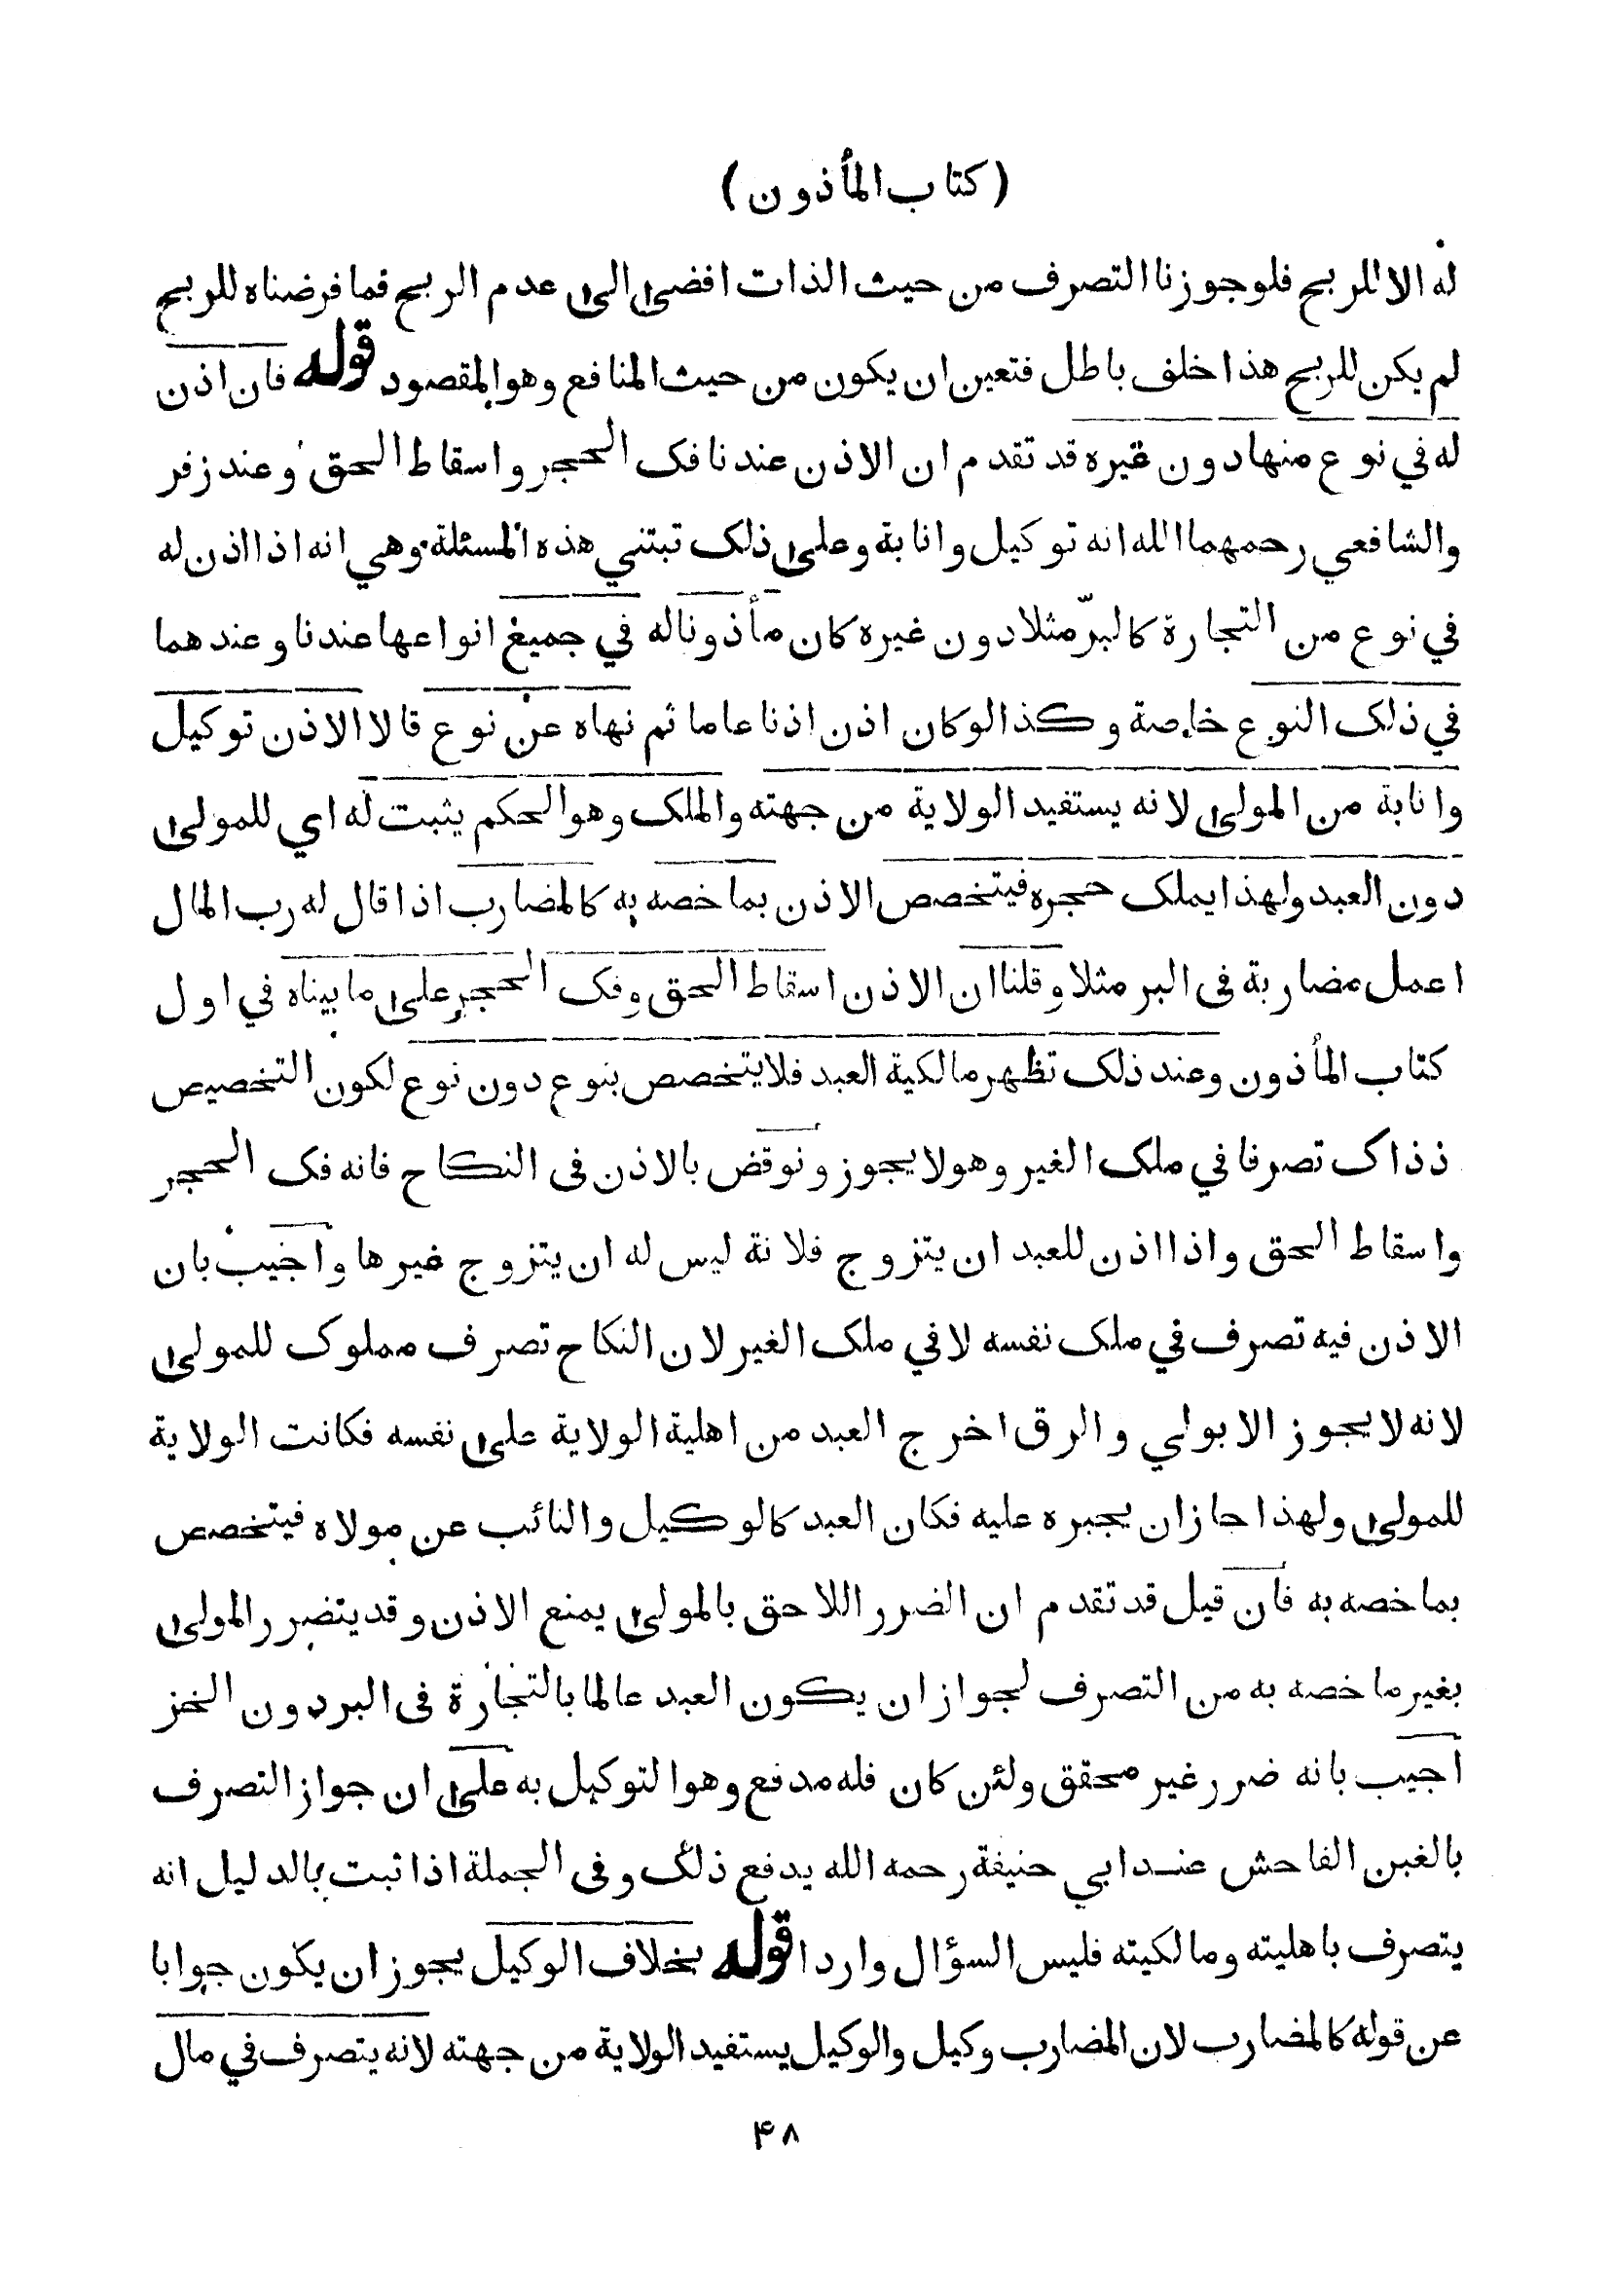 (كتاب المأذون)
له الا للربح فلوجوزنا التصرف من حيث الذات افضى الى عدم الربح فما فرضناه للربح
لم يكن للربح هذا خلف باطل فتعين ان يكون من حيث المنافع وهو المقصود قوله فان اذن
له في نوع منها دون غيره قد تقدم ان الاذن عندنا فك الحجر واسقاط الحق وعند زفر
والشافعي رحمهما الله انه توكيل وانابة وعلى ذلك تبتني هذه المسئلة وهي انه اذا اذن له
في نوع من التجارة كالبرّ مثلا دون غيره كان مأذونا له في جميع انواعها عندنا وعندهما
في ذلك النوع خاصة وكذا لو كان اذن اذنا عاما ثم نهاه عن نوع قالا الاذن توكيل
وانابة من المولى لانه يستفيد الولاية من جهته والملك وهو الحكم يثبت له اي للمولى
دون العبد ولهذا يملك حجره فيتخصص الاذن بما خصه به كالمضارب اذا قال له رب المال
اعمل مضاربة في البر مثلا وقلنا ان الاذن اسقاط الحق وفك الحجر على ما بيناه في اول
كتاب المأذون وعند ذلك تظهر مالكية العبد فلا يتخصص بنوع دون نوع لكون التخصيص
ذذاك تصرفا في ملك الغير وهو لا يجوز ونوقض بالاذن في النكاح فانه فك الحجر
واسقاط الحق واذا اذن للعبد ان يتزوج فلانة ليس له ان يتزوج غيرها واجيب بان
الاذن فيه تصرف في ملك نفسه لا في ملك الغير لان النكاح تصرف مملوك للمولى
لانه لا يجوز الا بولي والرق اخرج العبد من اهلية الولاية على نفسه فكانت الولاية
للمولى ولهذا جاز ان يجبره عليه فكان العبد كالوكيل والنائب عن مولاه فيتخصص
بما خصه به فان قيل قد تقدم ان الضرر اللاحق بالمولى يمنع الاذن وقد يتضرر المولى
بغير ما خصه به من التصرف لجواز ان يكون العبد عالما بالتجارة في البر دون الخز
اجيب بانه ضرر غير محقق ولئن كان فله مدفع وهو التوكيل به على ان جواز التصرف
بالغبن الفاحش عند ابي حنيفة رحمه الله يدفع ذلك وفي الجملة اذا ثبت بالدليل انه
يتصرف باهليته ومالكيته فليس السؤال واردا قوله بخلاف الوكيل يجوز ان يكون جوابا
عن قوله كالمضارب لان المضارب وكيل والوكيل يستفيد الولاية من جهته لانه يتصرف في مال
۴۸